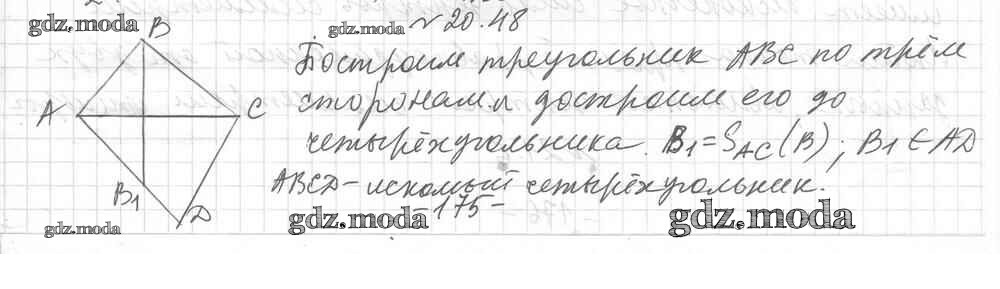 gdz.moda
gdz.moda
№20.48
B
A
C
B₁
D
Построим треугольник ABC по трём
сторонам и достроим его до
четырёхугольника. B₁=S_AC(B); B₁∈AD
ABCD-искомый четырёхугольник.
-175-
gdz.moda
gdz.moda
gdz.moda